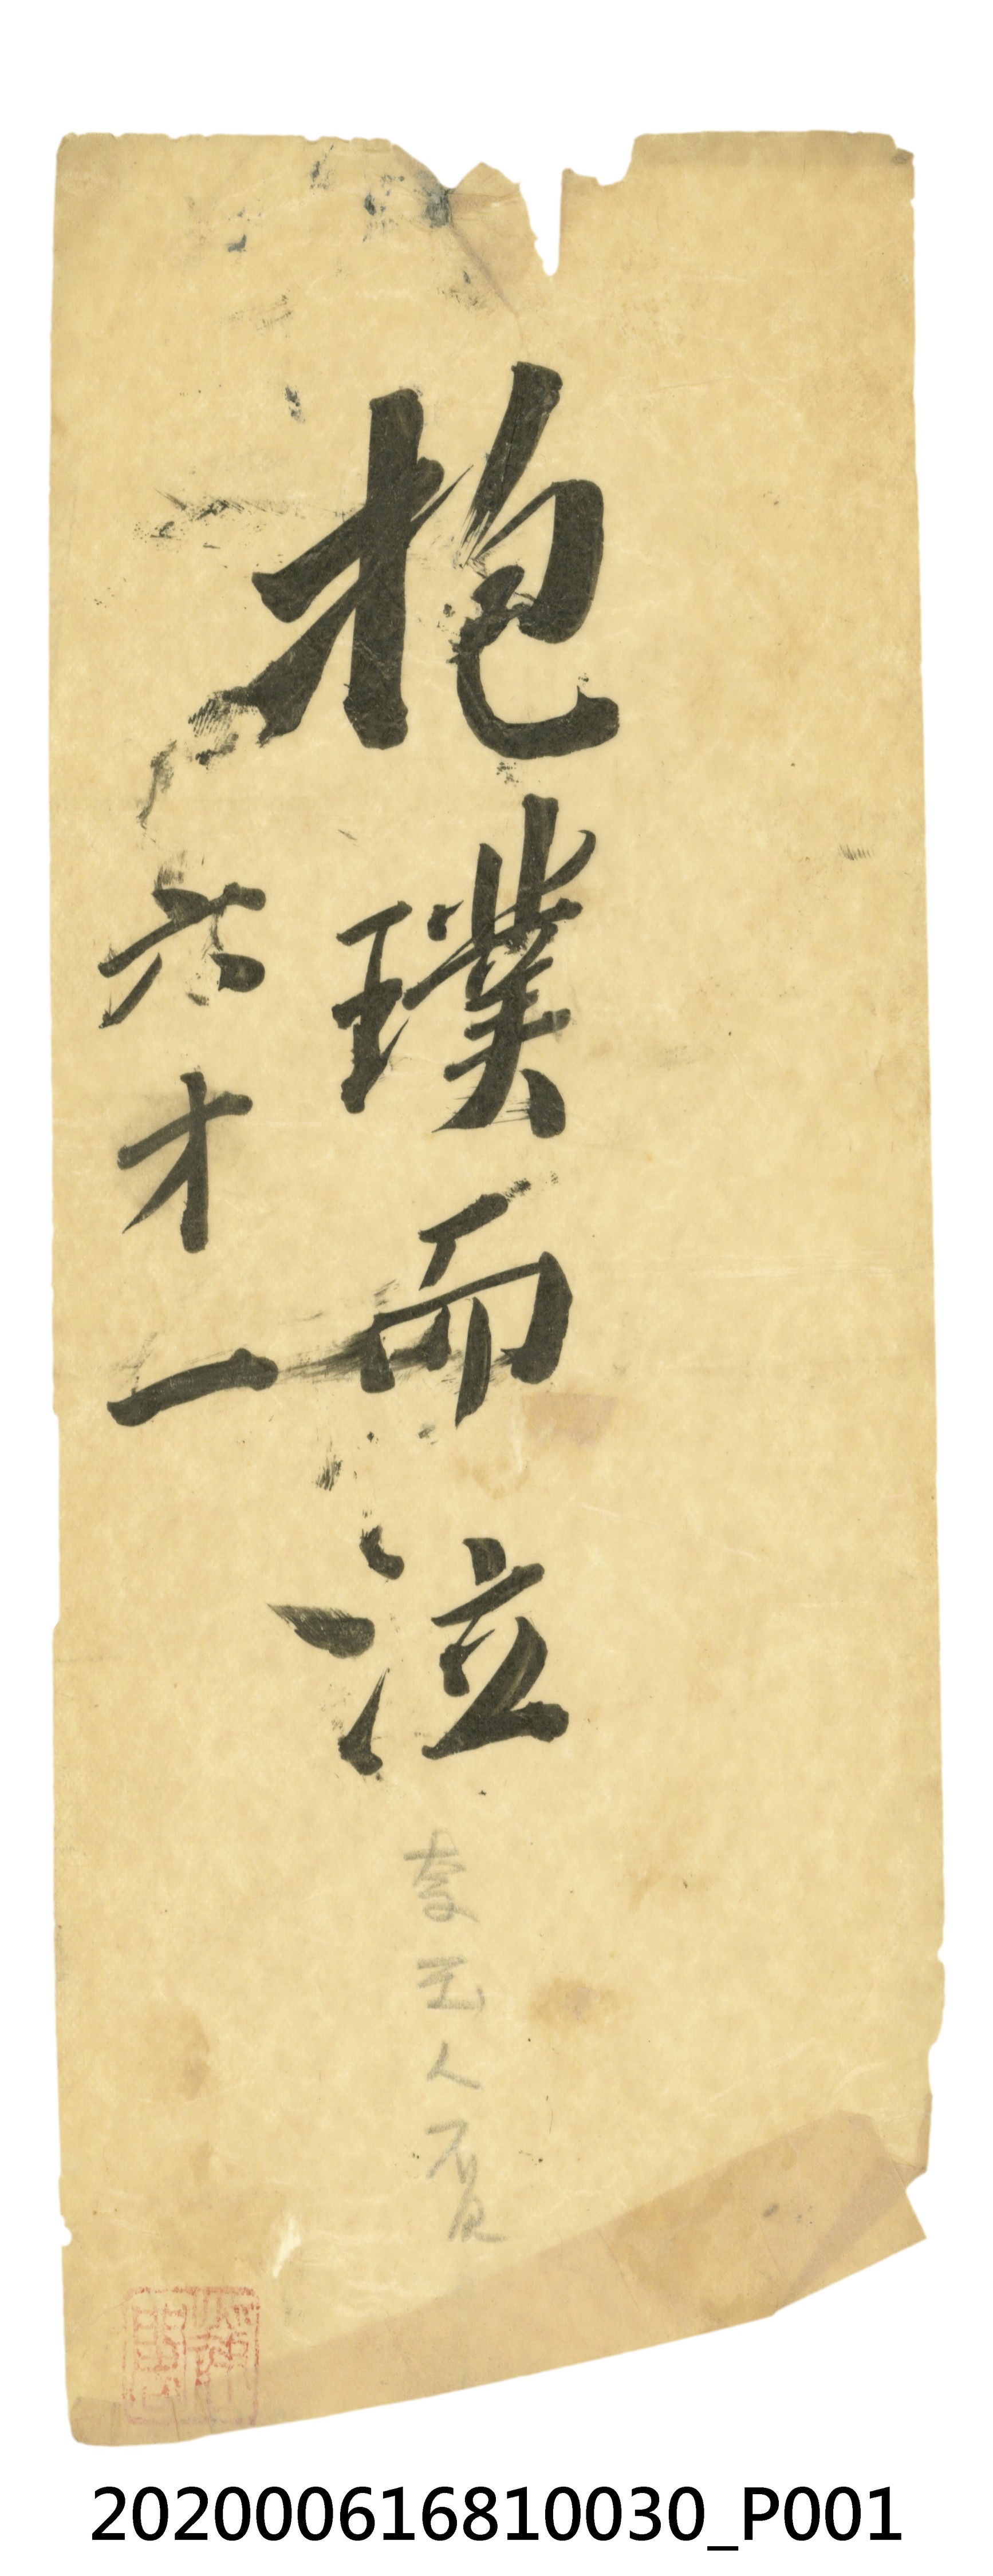 抱璞而泣
六才一
202000616810030_P001